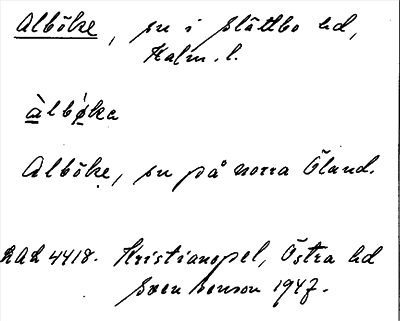 Alböke, sn i Slättbo hd,
Kalm. l.
àlbø̀ka
Alböke, sn på norra Öland.
RAÄ 4418. Kristianopel, Östra hd
Sven Benson 1947.